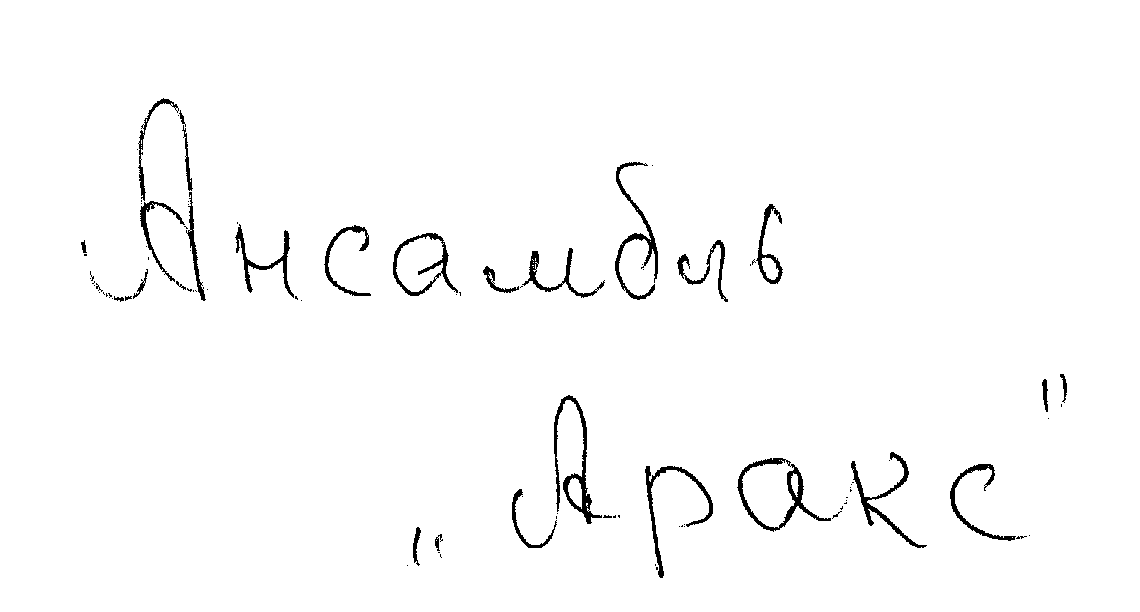 Ансамбль
„Аракс"